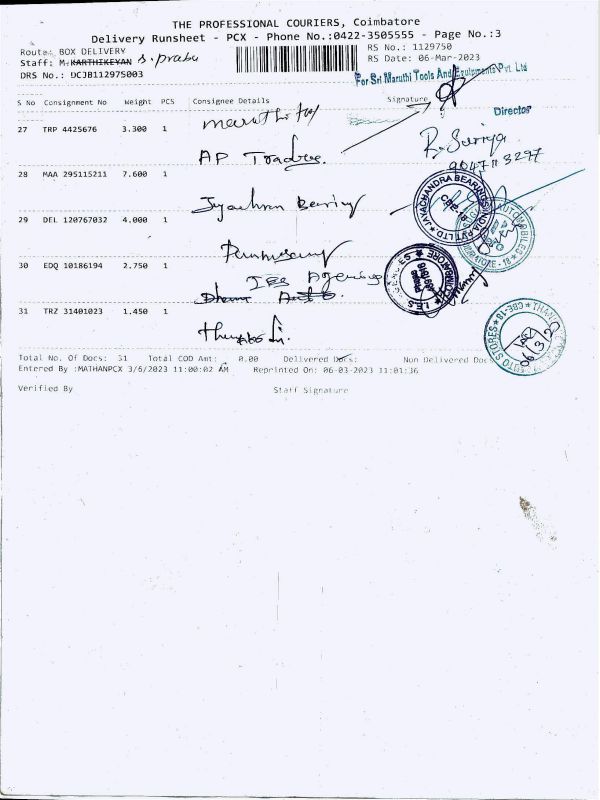 THE PROFESSIONAL COURIERS, Coimbatore
Delivery Runsheet - PCX - Phone No.:0422-3505555 - Page No.:3
Route: BOX DELIVERY
RS No.: 1129750
Staff: M.KARTHIKEYAN S. prabu
RS Date: 06-Mar-2023
DRS No.: DCJB112975003
For Sri Maruthi Tools And Equipments Pvt. Ltd
S No Consignment No Weight PCS Consignee Details Signature
Director
27 TRP 4425676 3.300 1
AP Traders
R. Suriya
28 MAA 295115211 7.600 1
JAYACHANDRA BEARINGS INDIA PVT LTD
CBE-18
29 DEL 120767032 4.000 1
30 EDQ 10186194 2.750 1
IES Agencies
I.E.S AGENCIES
31 TRZ 31401023 1.450 1
AUTO STORES CBE-18
06/3/23
Total No. Of Docs: 31 Total COD Amt: 0.00 Delivered Docs: Non Delivered Doc
Entered By :MATHANPCX 3/6/2023 11:00:02 AM Reprinted On: 06-03-2023 11:01:36
Verified By Staff Signature